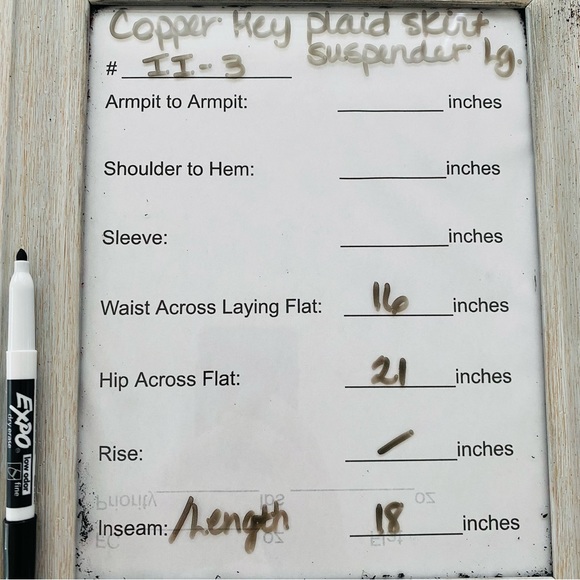 Copper Key plaid skirt
suspender Lg.
# II-3
Armpit to Armpit: ______ inches
Shoulder to Hem: ______ inches
Sleeve: ______ inches
Waist Across Laying Flat: 16 inches
Hip Across Flat: 21 inches
Rise: / inches
Priority ______ lbs ______ oz
Inseam: /Length 18 inches
FC oz Flat
EXPO
dry erase
low odor
fine